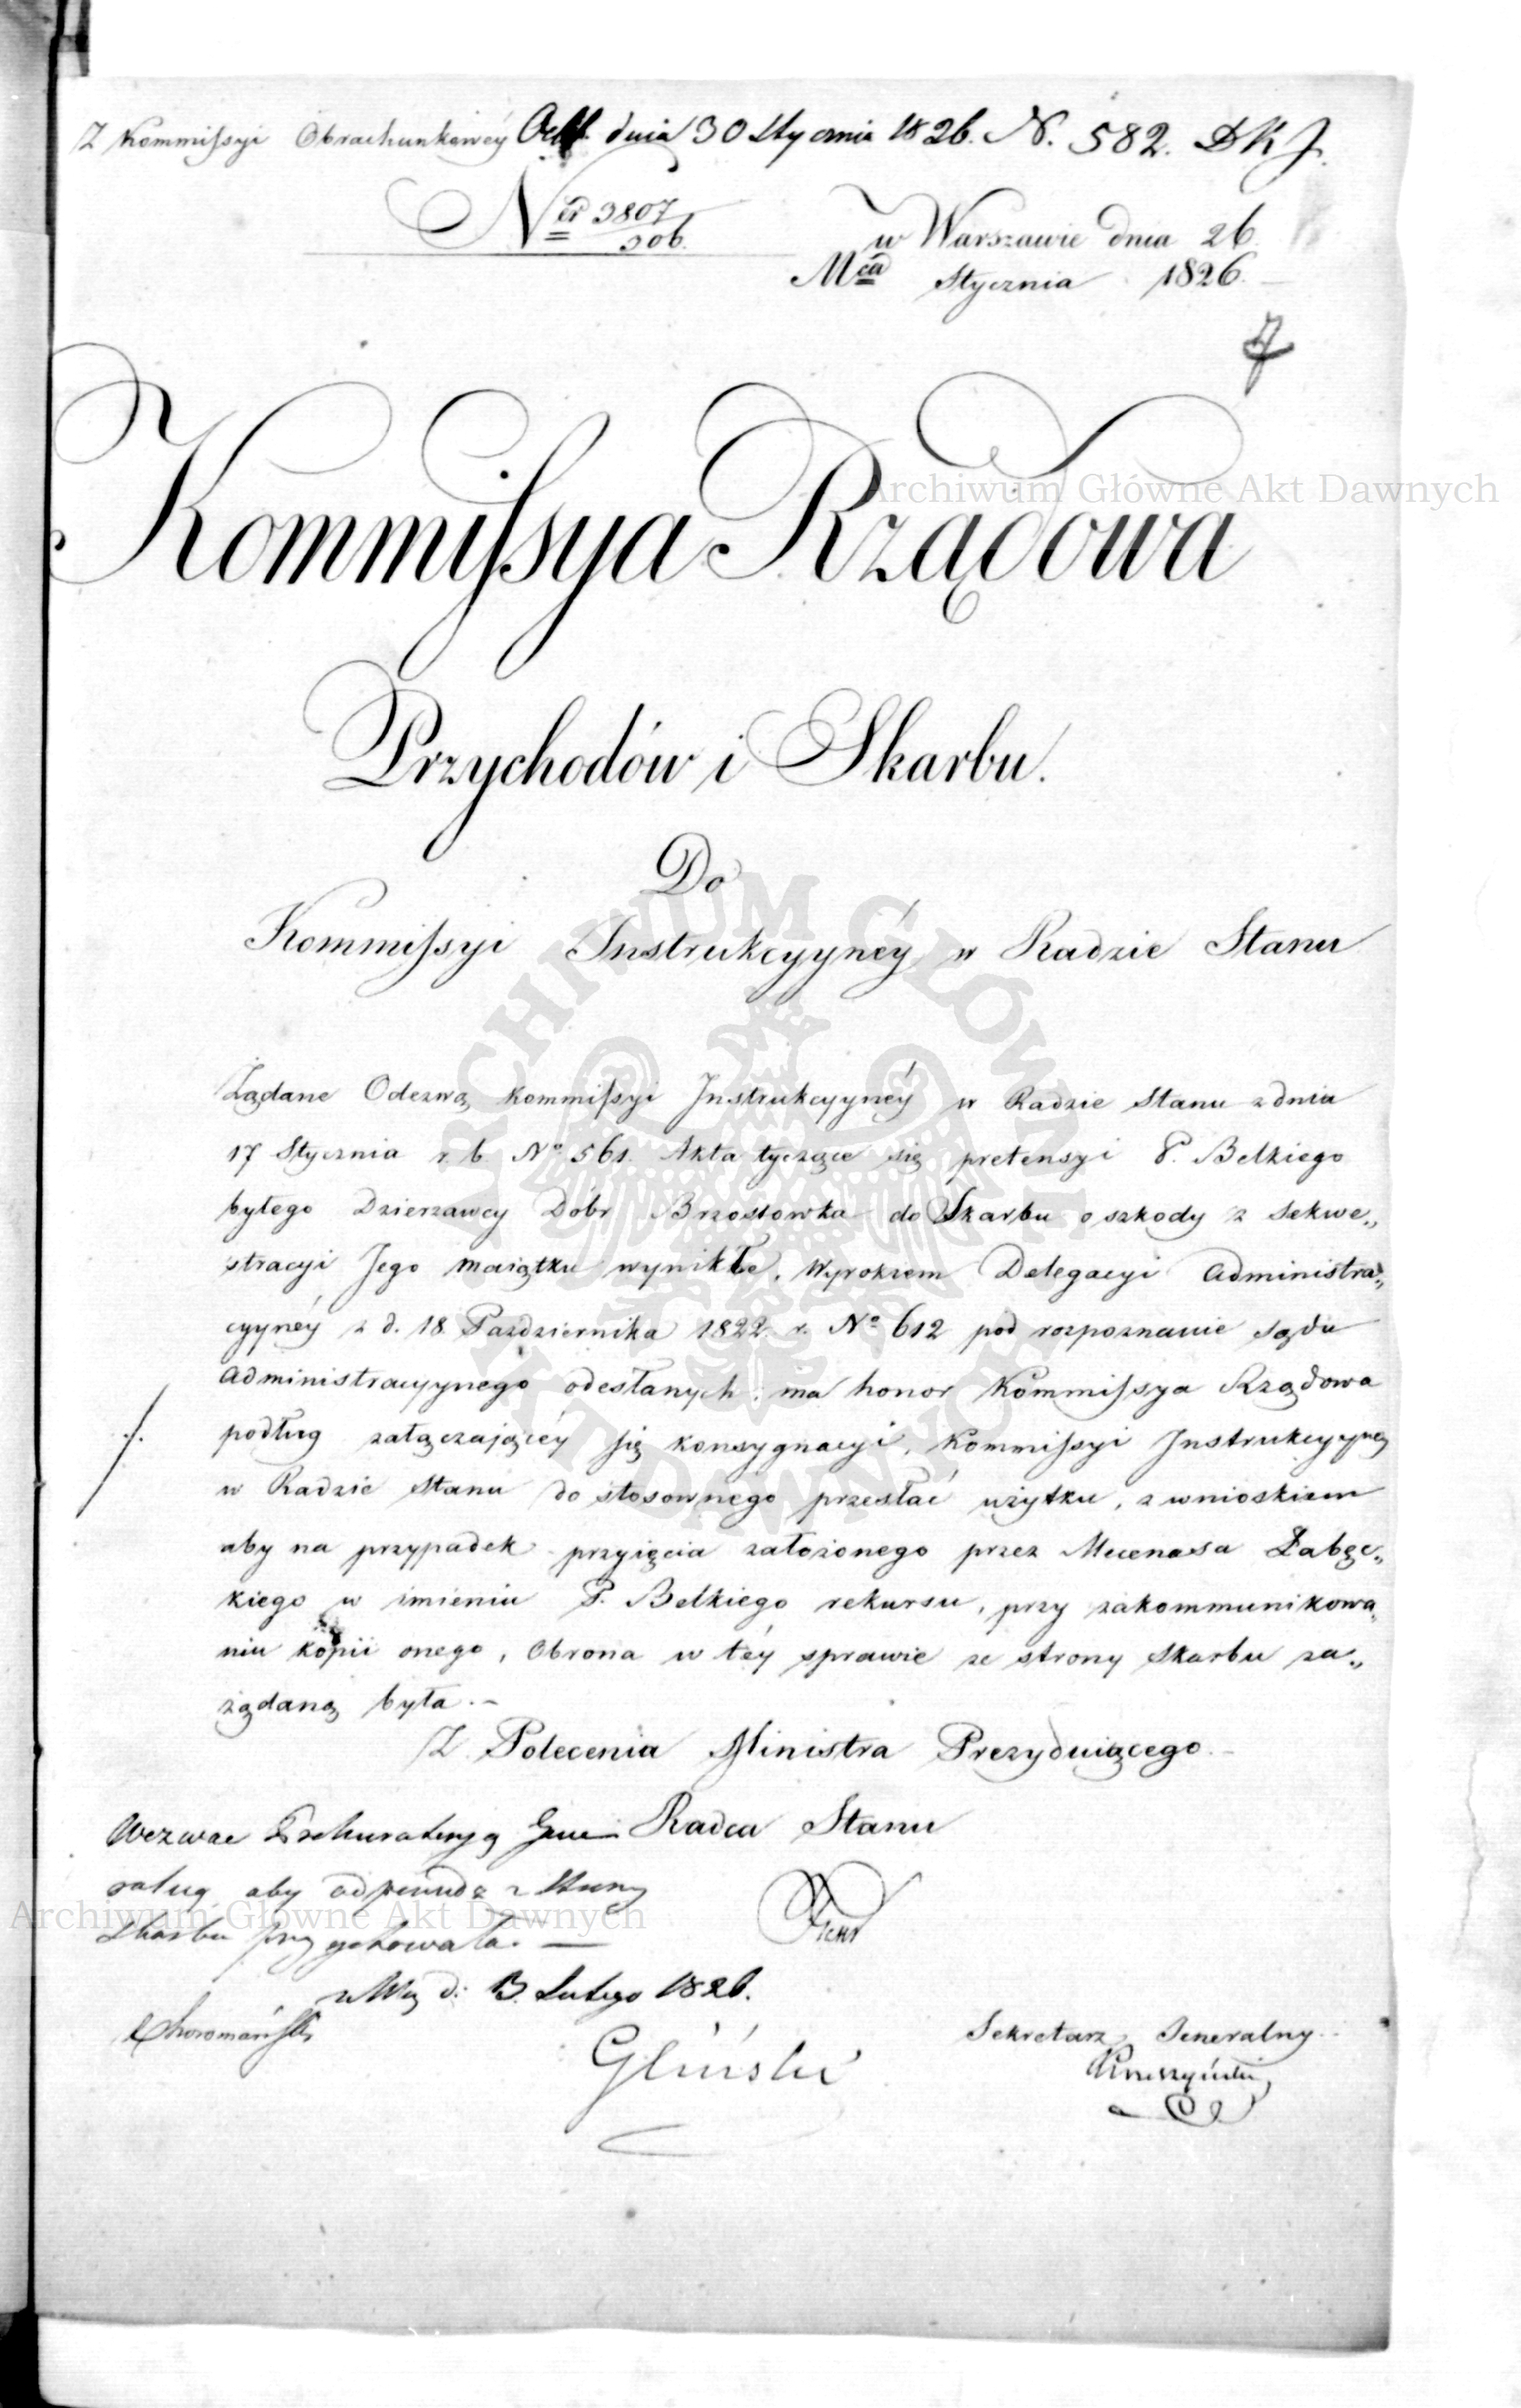 Z Kommissyi Obrachunkowéy Odb. dnia 30 Stycznia 1826. N. 582. D K J.
Ner 3807/306.
w Warszawie dnia 26
Mca Stycznia 1826.
7
Kommissya Rządowa
Archiwum Główne Akt Dawnych
Przychodów i Skarbu.
Do
Kommissyi Instrukcyynéy w Radzie Stanu
Żądane Odezwą Kommissyi Instrukcyynéy w Radzie Stanu z dnia
17 Stycznia r. b. No 561. Akta tyczące się pretensyi P. Belkiego
byłego Dzierzawcy Dóbr Brzostówka do Skarbu o szkody z Sekwe„
stracyi Jego Maiątku wynikłe, Wyrokiem Delegacyi Administra„
cyynéy z d. 18 Pazdziernika 1822 r. No 612 pod rozpoznanie Sądu
Administracyynego odesłanych, ma honor Kommissya Rządowa
./. podług załączającéy się konsygnacyi, Kommissyi Instrukcyynéy
w Radzie Stanu do stosownego przesłać użytku, z wnioskiem
aby na przypadek przyięcia założonego przez Mecenasa Łabęc„
kiego w imieniu P. Belkiego rekursu, przy zakommunikowa„
niu kopii onego, Obrona w téy sprawie ze strony Skarbu za„
żądaną była.–
Z Polecenia Ministra Prezyduiącego.–
Radca Stanu
Wezwać Prokuratoryą Gene
ralną aby odpowiedz z strony
Skarbu przygotowała. —
Archiwum Główne Akt Dawnych
d: 3. Lutego 1826.
Choromański
Gliński
Sekretarz Jeneralny
ARCHIWUM GŁÓWNE AKT DAWNYCH